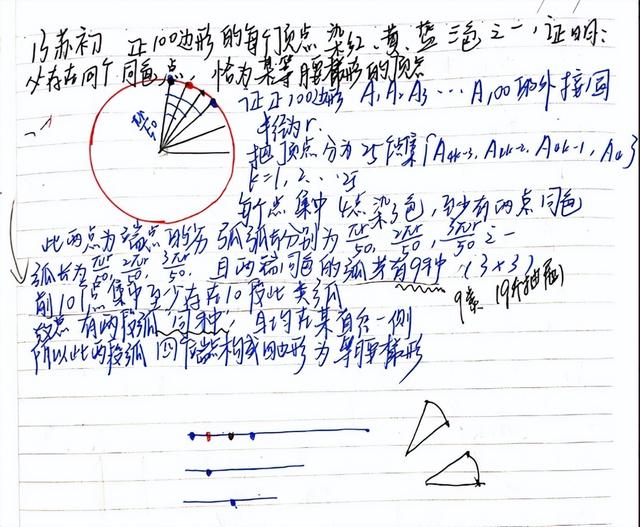 15苏初 正100边形的每个顶点染红、黄、蓝三色之一,证明:
必存在同个同色点,恰为某等腰梯形的顶点
证正100边形 A₁A₂A₃…A₁₀₀的外接圆
半径为r.
把顶点分为25个点集{A4k-3, A4k-2, A4k-1, A4k}
k=1,2,…25
每个点集中4点染3色,至少有两点同色
此两点为端点的劣弧弧长分别为 πr/50, 2πr/50, 3πr/50 之一
弧长为 πr/50, 2πr/50, 3πr/50. 且两端同色的弧共有9种 (3×3)
前10个点集中至少存在10段此类弧
9类 抽屉
有两段弧"同种",且均在某直径一侧
所以此两段弧四个端点构成四边形为等腰梯形